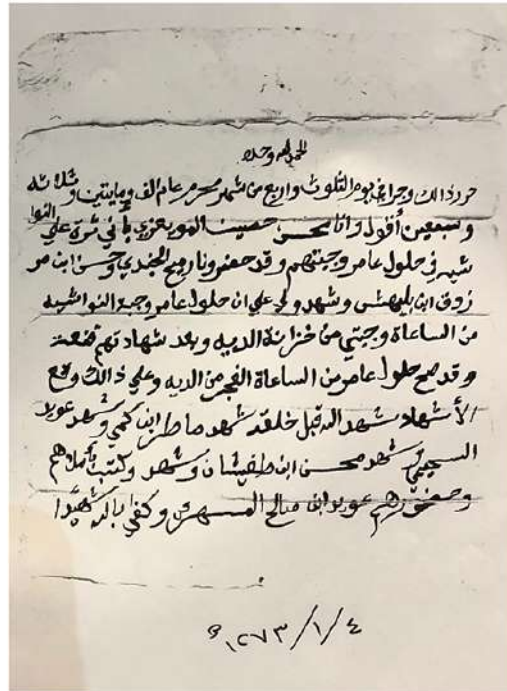 الحمد لله وحده
حرر ذالك وجرا في يوم الثلوث واربع من شهر محرم عام الف ومايتين وثلاثه
وسبعين أقول وانا محسن حصيف المويعزي باني شرة علي النوا
شيه في حلول عامر وجبتهم وقد حضرو نا رميح الجندي وحسن ابن مر
زوق ابن بليهش وشهدو لي علي ان حلول عامر وجبة النواشيه
من الساعاة وجبتي من خزانة الديه وبعد شهادتهم
وقد صح حلول عامر من الساعاة الفجر من الديه وعلي ذالك وقع
الأشهاد شهد الله قبل خلقه شهد ماطر ابن كمي وشهد عويد
السحيمي وشهد محسن ابن طفيشان وشهد وكتب بأملاهم
وحضورهم عويد ابن صالح المسهري وكفي بالله شهيدًا
١٢٧٣/١/٤ه